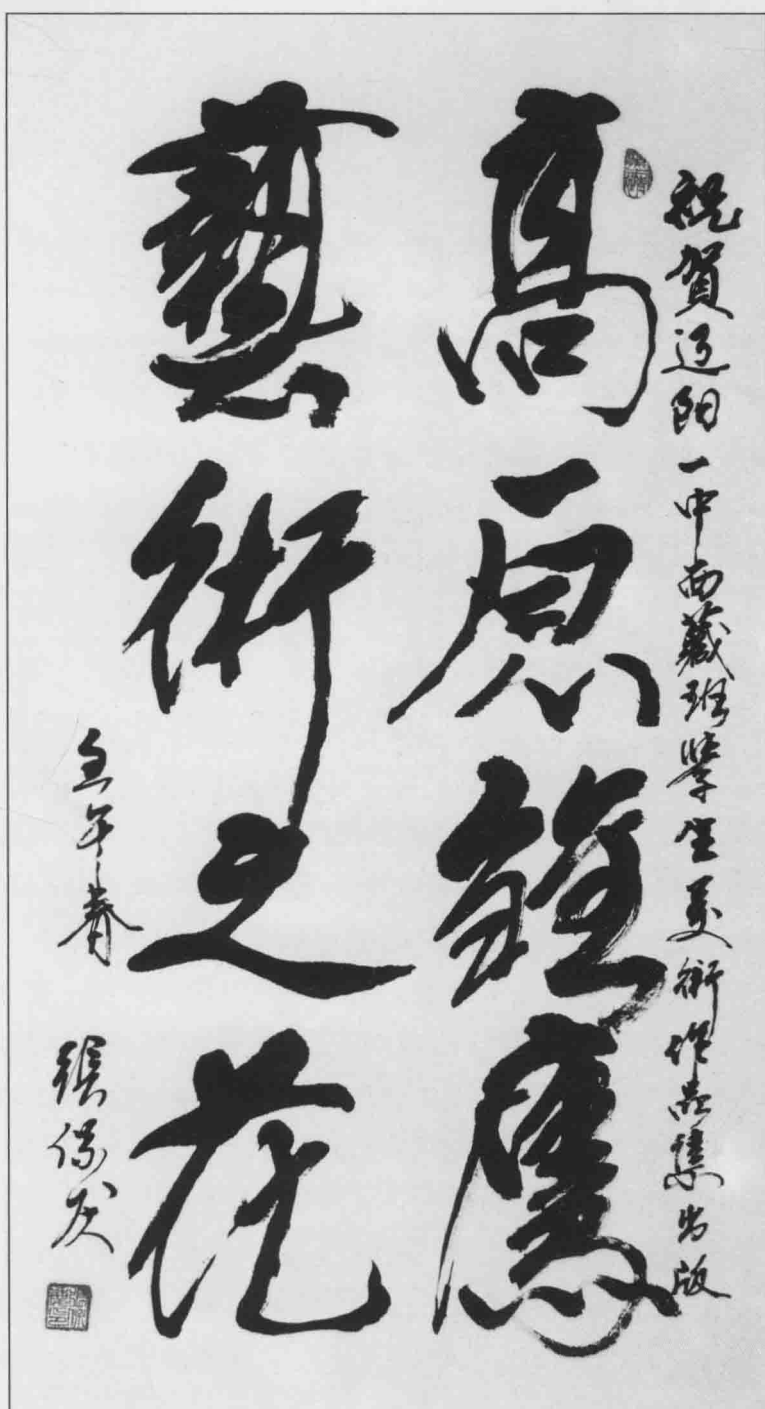 祝賀辽阳一中西藏班學生美術作品集出版
高原雄鷹
藝術之花
壬午春
張保庆